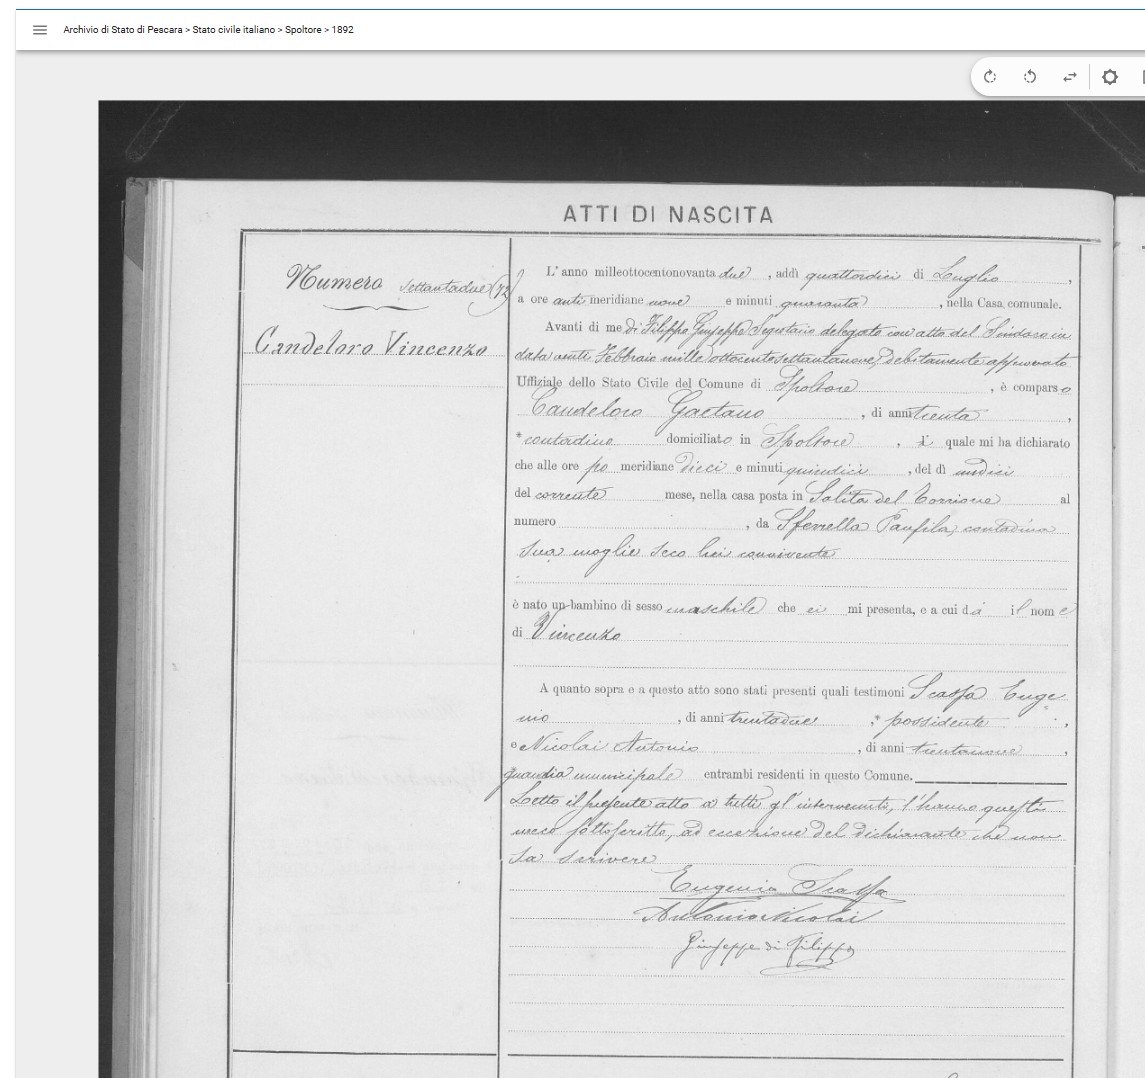 Archivio di Stato di Pescara > Stato civile italiano > Spoltore > 1892
ATTI DI NASCITA
Numero settantadue (72)
Candeloro Vincenzo
L'anno milleottocentonovanta due, addì quattordici di Luglio,
a ore anti meridiane nove e minuti quaranta, nella Casa comunale.
Avanti di me di Filippo Giuseppe Segretario delegato con atto del Sindaco in
data venti Febbraio mille ottocentosettantanove, debitamente approvato
Uffiziale dello Stato Civile del Comune di Spoltore, è comparso
Candeloro Gaetano, di anni trenta,
* contadino domiciliato in Spoltore, il quale mi ha dichiarato
che alle ore po meridiane dieci e minuti quindici, del dì undici
del corrente mese, nella casa posta in Salita del Torrione al
numero, da Sferrella Panfila, contadina
sua moglie seco lui convivente
è nato un bambino di sesso maschile che ei mi presenta, e a cui dà il nome
di Vincenzo
A quanto sopra e a questo atto sono stati presenti quali testimoni Scaffa Euge
nio, di anni trentadue, * possidente,
e Nicolai Antonio, di anni trentanove,
guardia municipale entrambi residenti in questo Comune.
Letto il presente atto a tutti gl'intervenuti, l'hanno questi
meco sottoscritto, ad eccezione del dichiarante che non
sa scrivere
Eugenio Scaffa
Antonio Nicolai
Giuseppe di Filippo